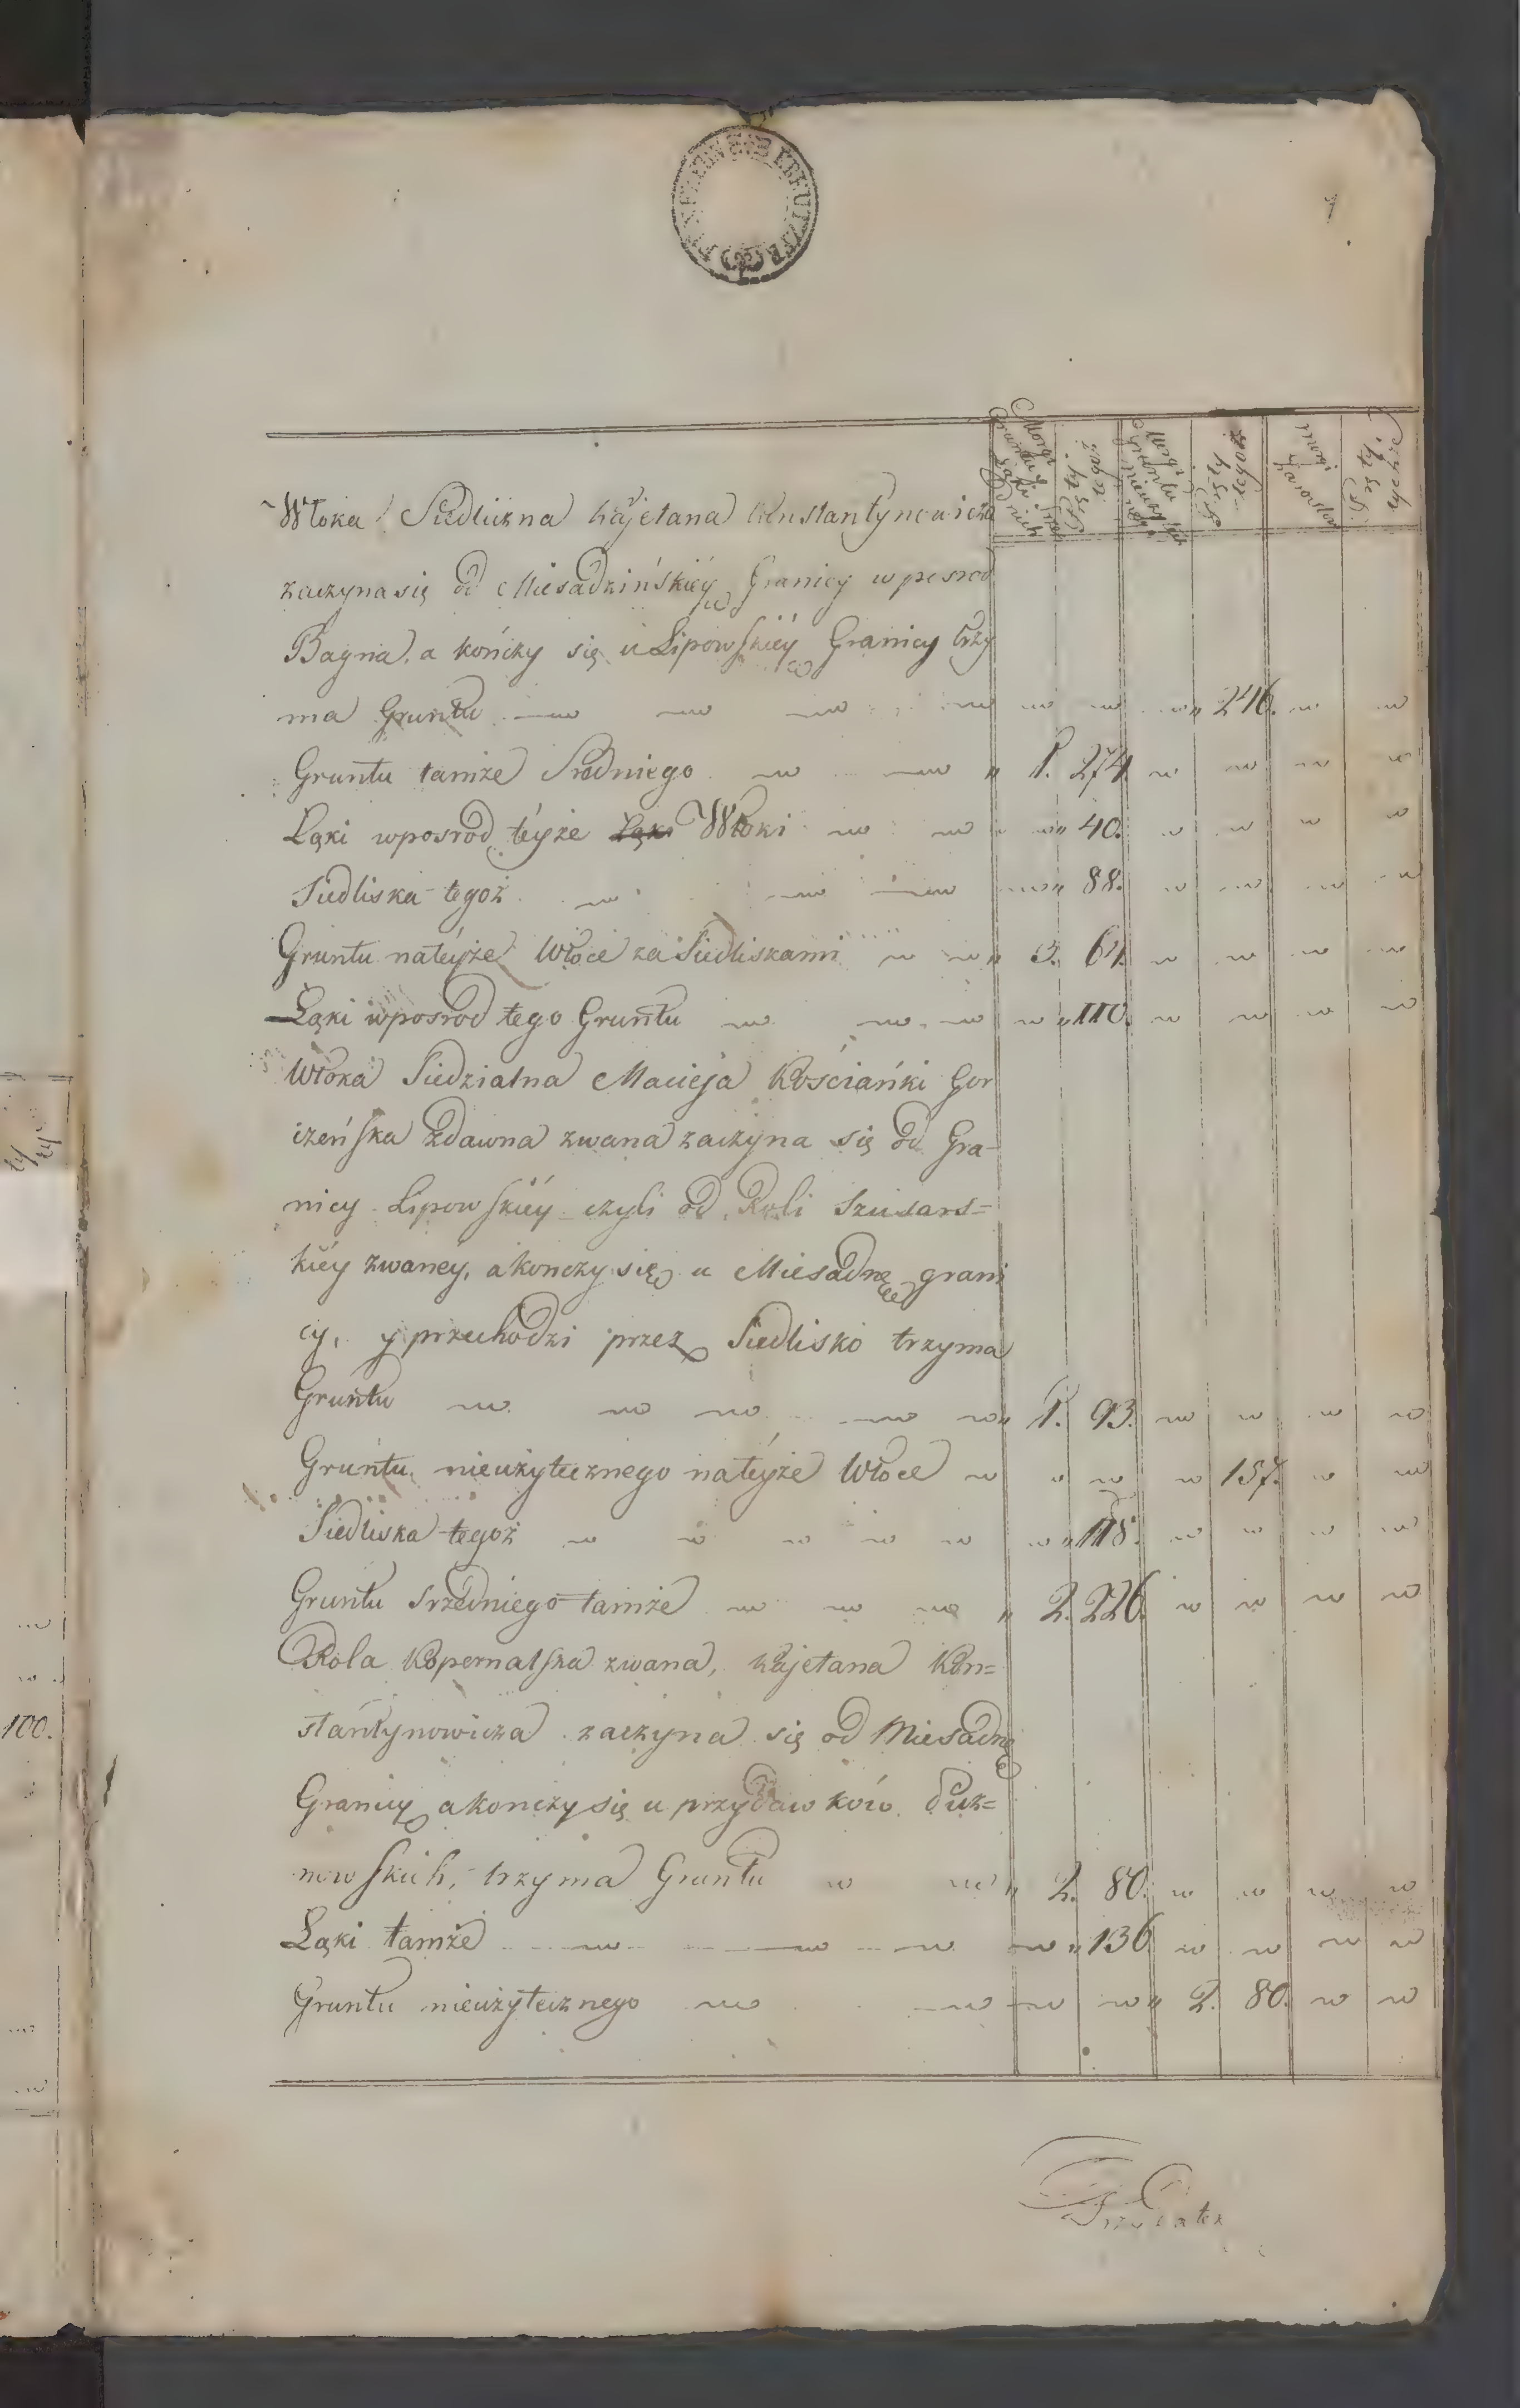 7
Morgi Gruntu y Łąki
Morgi Gruntu nieużytecznego
Morgi Zarosłow
Włoka Siedliczna Kajetana Konstantynowicza
zaczyna się od Miesadzińskiéy Granicy wposrod
Bagna, a kończy się u Lipowskiéy Granicy trzy
ma Gruntu „ 246.
Gruntu tamże Sredniego „ 1. 274
Łąki wposrod téyże Łąki Włoki „ 40.
Siedliska tegoż „ 88.
Gruntu natéyże Włoce za Siedliskami „ 3. 64.
Łąki wposrod tego Gruntu „ 110.
Włoka Siedzialna Macieja Kościańki Gor
czeńska zdawna zwana zaczyna się od Gra-
nicy Lipowskiéy czyli od Roli Szusars=
kiéy zwaney, a konczy się u Miesadnę grani
cy, y przechodzi przez Siedlisko trzyma
Gruntu „ 1. 93.
Gruntu nieużytecznego natéyże Włoce 157.
Siedliska tegoż „ 118.
Gruntu Srzedniego tamże „ 2. 226.
Rola Kopernalska zwana, Kajetana Kon=
stantynowicza zaczyna się od Miesadnę
Granicy a konczy się u przydawków Duż=
nowskich, trzyma Gruntu „ 2. 80.
Łąki tamże „ 136
Gruntu nieużytecznego „ 2. 80.
100.